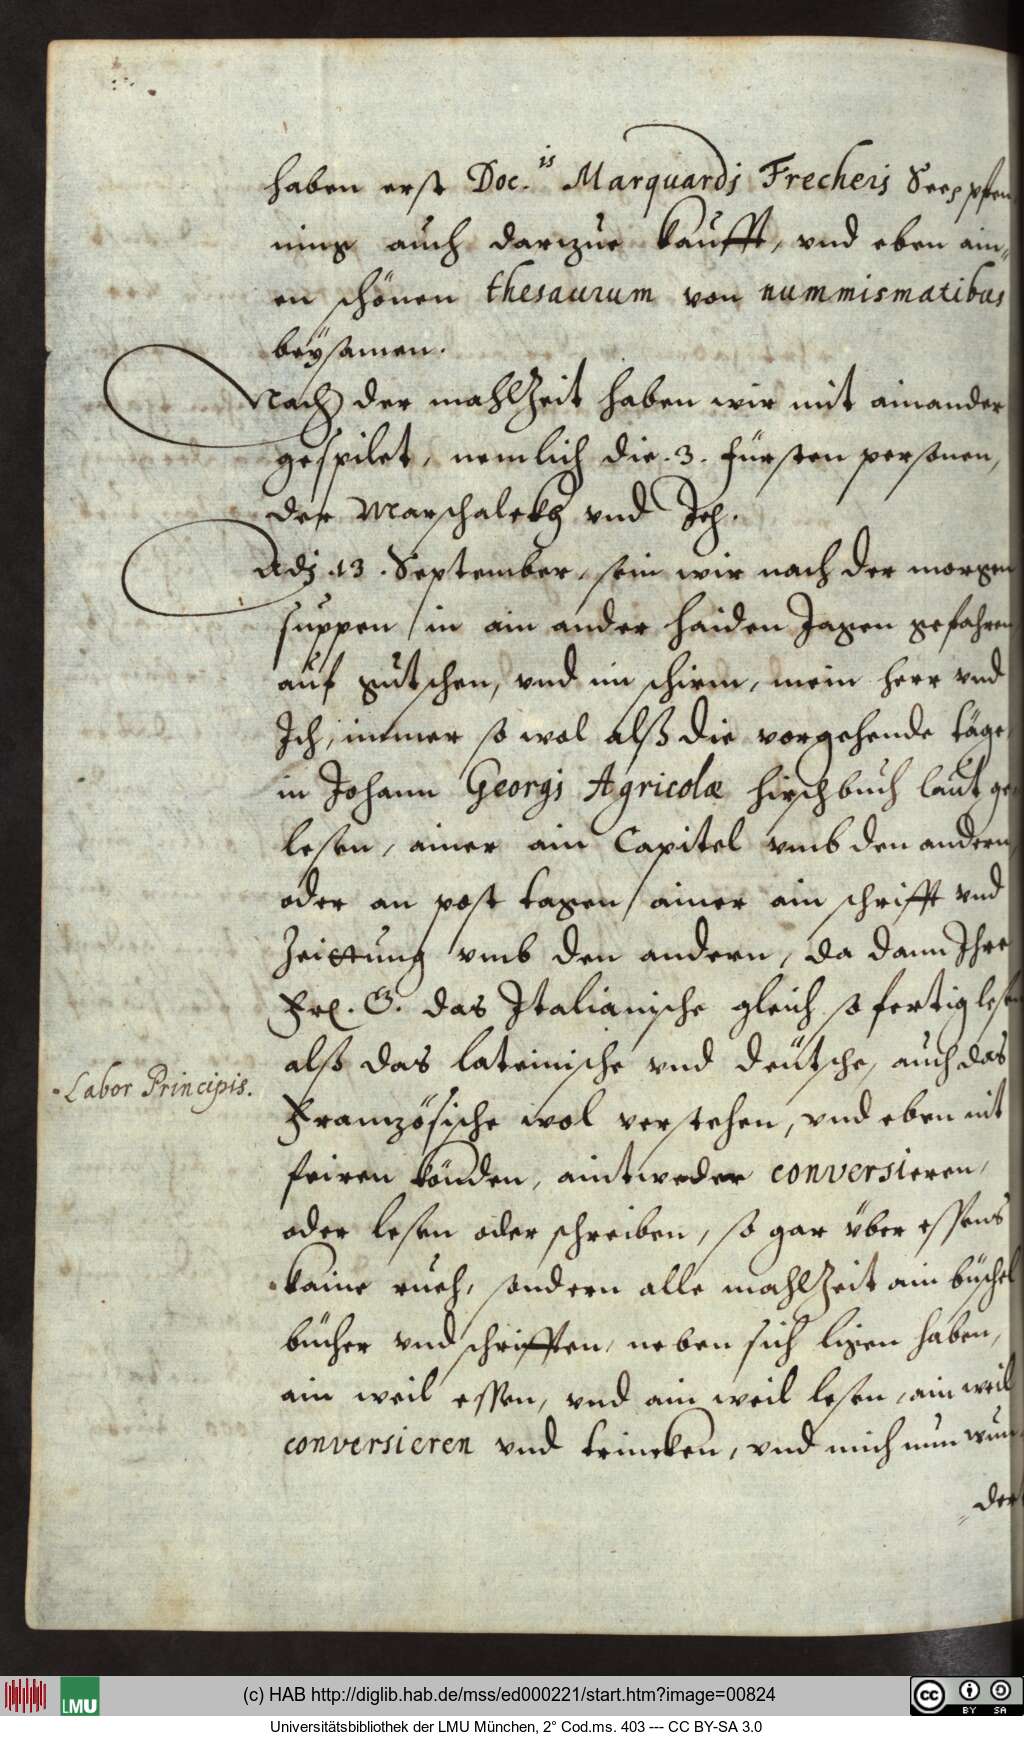 haben erst Doc.is Marquardj Freheri pfen
ning auch darzue kaufft, vnd eben ain=
en schönen thesaurum von nummismatibus
beÿsamen.
Nach der mahlZeit haben wir mit ainander
gespilet, nemlich die .3. fürsten personen,
der Marschalckh vnd Ich.
Adj .13. September, sein wir nach der morgen
suppen / in ain ander haiden Jagen gefahren
auf gutschen, vnd im schirm, mein herr vnd
Ich, immer so wol alß die vorgehende täge,
in Johann Georgj Agricolæ hirschbuch laut ge=
lesen, ainer ain Capitel vmb den andern,
oder an post tagen / ainer ain schrifft vnd
Zeittung vmb den andern, da dann Ihre
Frl. G. das Italianische gleich so fertig lesen
alß das lateinische vnd deütsche, auch das
Labor Principis.
Französische wol verstehen, vnd eben nit
feiren könden, aintweder conversieren,
oder lesen oder schreiben, so gar über essens
kaine rueh, sondern alle mahlZeit ain büschel
bücher vnd schrifften, neben sich ligen haben,
ain weil essen, vnd ain weil lesen, ain weil
conversieren vnd trincken, vnd mich nun wun=
dert
(c) HAB http://diglib.hab.de/mss/ed000221/start.htm?image=00824
LMU
BY SA
Universitätsbibliothek der LMU München, 2° Cod.ms. 403 --- CC BY-SA 3.0